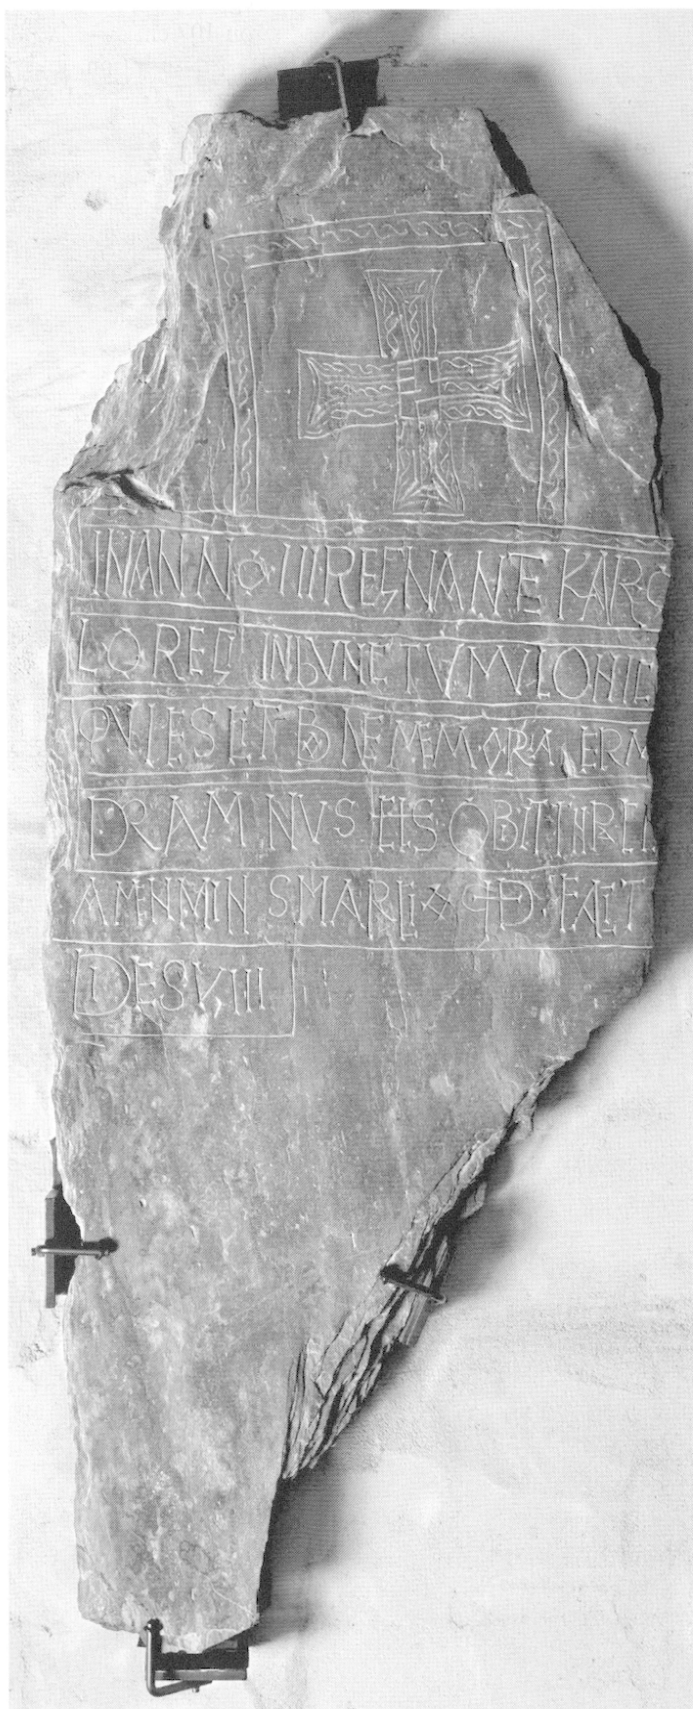 INANNO III REGNANTE KARO
LO REG INBUNC TVMVLO HIC
QVIESCIT BONE MEMORA ERM
DRAMNVS ETS OBIIT
MINS MARCIO QD FACIT
DES VIII